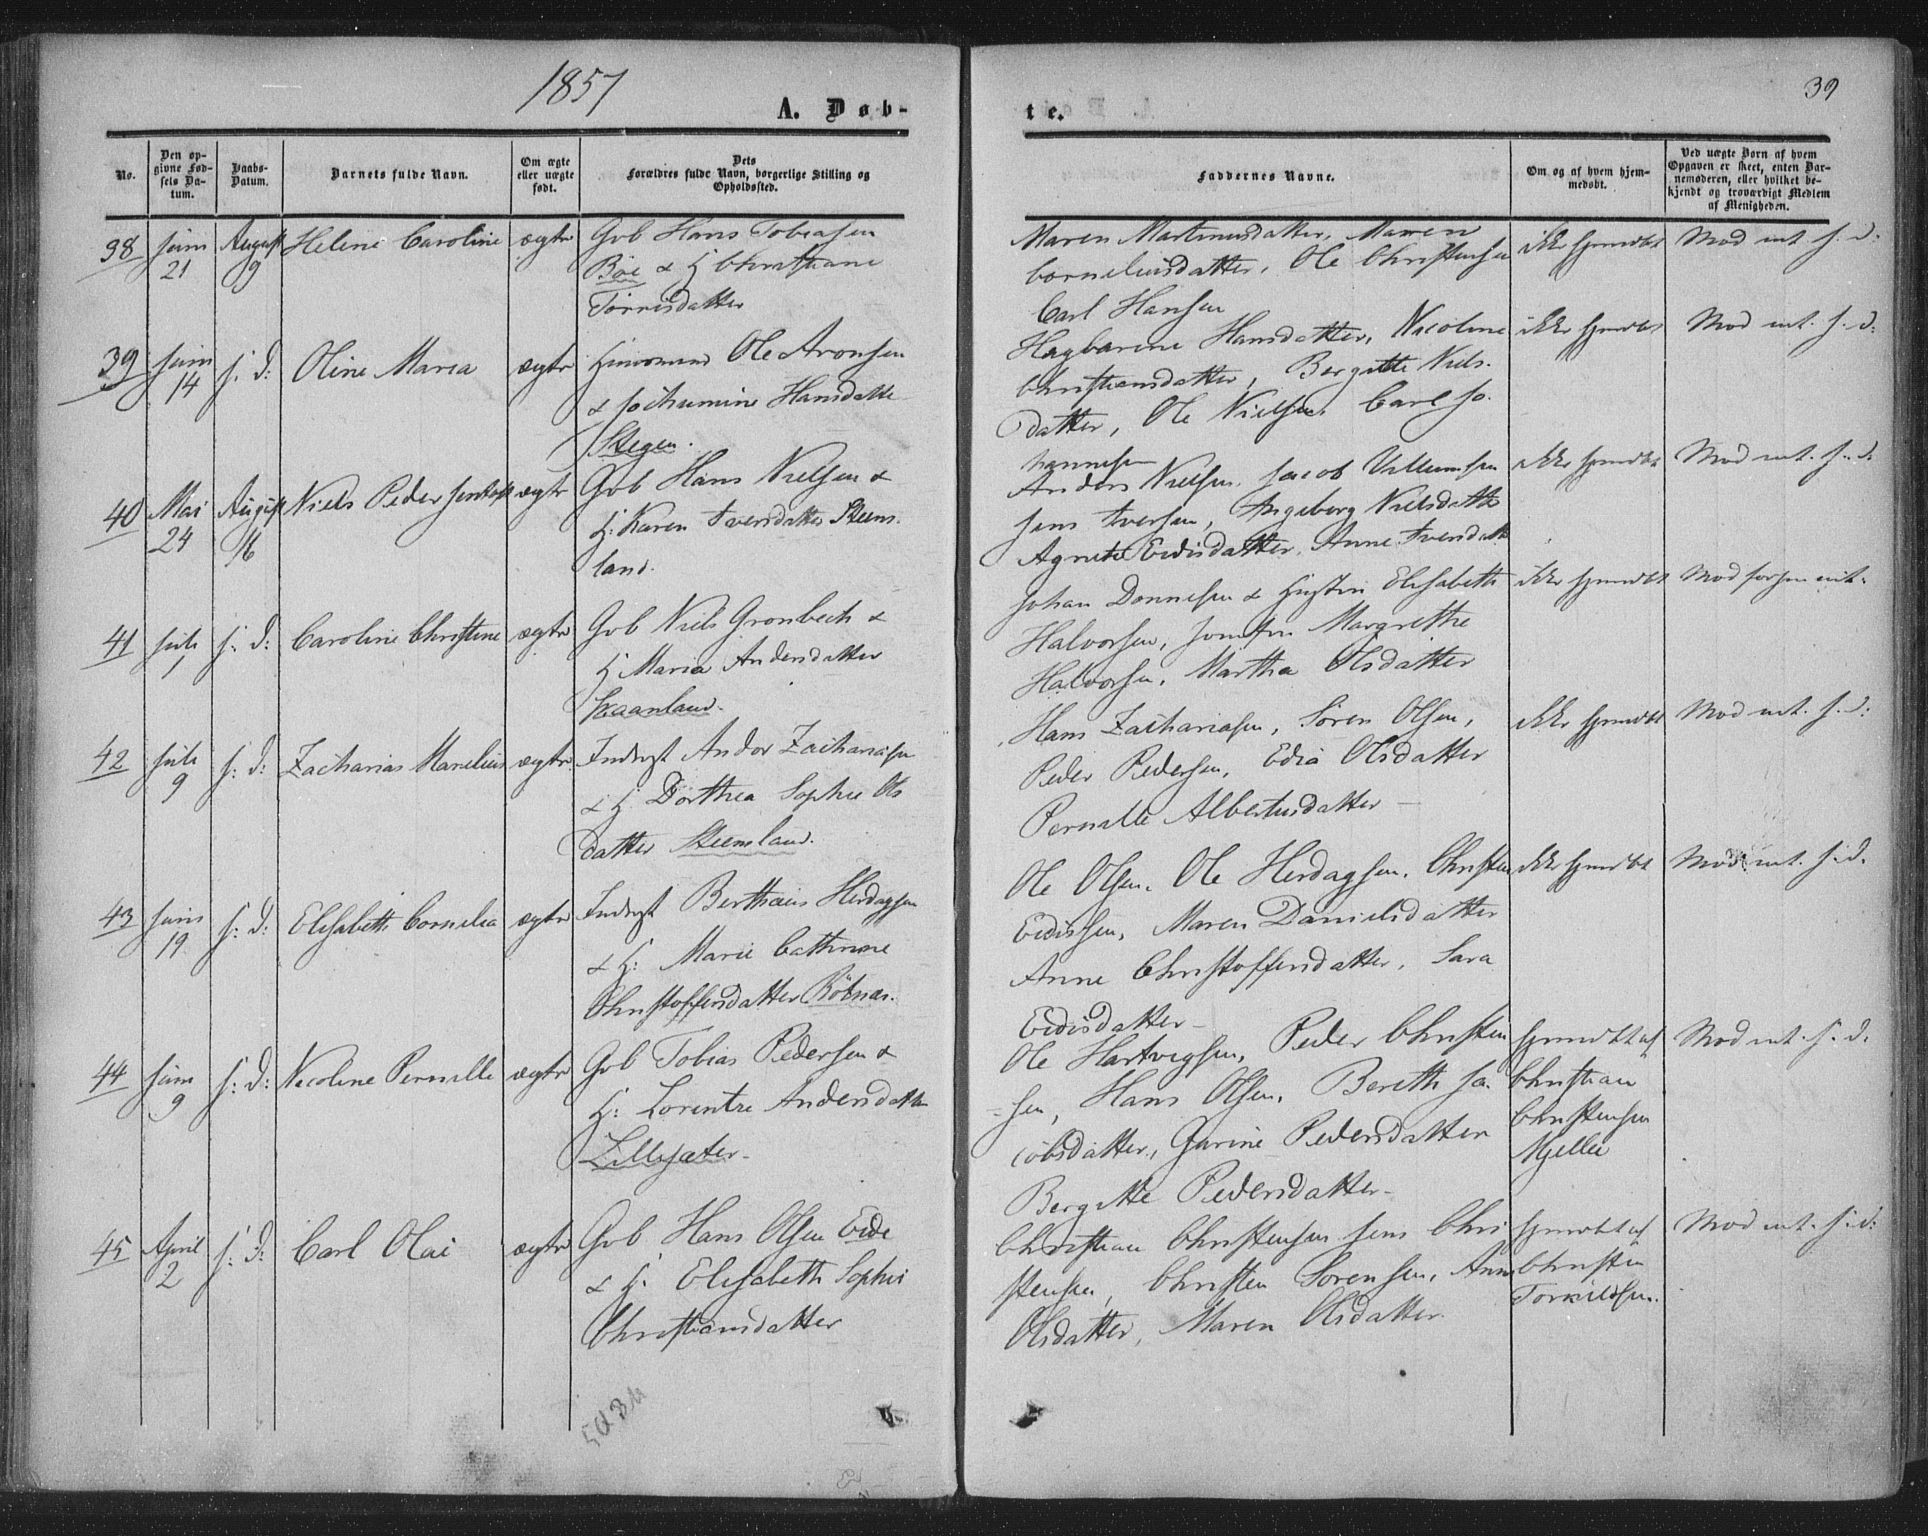 1857
39
A. Døb-
te.
No.
Den op-
givne Fød-
sels Da-
tum.
Daabs-
Datum.
Barnets fulde Navn.
Om ægte
eller uægte
født.
Dets
Forældres fulde Navn, borgerlige Stilling og
Opholdssted.
Faddernes Navne.
Om og af hvem hjem-
medøbt.
Ved uægte Børn af hvem
Opgaven er skeet, enten Bar-
nemoderen, eller hvilket be-
kjendt og troværdigt Medlem
af Menigheden.
38
Juni
21
August
9
Helene Caroline
ægte
Gb Hans Tobiasen
Böe & H Christiane
Torrisdatter
Maren Martinusdatter, Maren
Corneliusdatter, Ole Christensen
Carl Hansen
ikke hjmdbt
Mod int. s. d:
39
Juni
14
s. d:
Oline Maria
ægte
Ole Aronsen
& Jochumine Hansdatte
Stegen.
Hagbarine Hansdatter, Nicoline
Christiansdatter, Bergitte Niels-
datter, Ole Nielsen, Carl Jo-
hannesen
ikke hjmdbt
Mod int. s. d:
40
Mai
24
August
16
Niels Peder
ægte
Gb Hans Nielsen &
H: Karen Iversdatter Steens-
land.
Anders Nielsen, Jacob Villumsen
Jens Iversen, Ingeborg Nielsdatter
Agnete Eidisdatter, Anne Iversdatt
ikke hjmdbt
Mod int. s. d.
41
Juli
1
s: d:
Caroline Christine
ægte
Gb Niels Gronbech &
H Maria Andersdatter
Skaanland.
Johan Donnesen & Hustru Elisabeth
Halvorsen, Jomfru Margrethe
Halvorsen, Martha Olsdatter
ikke hjmdbt
Mod int.
42
Juli
9
s: d:
Zacharias Marelius
ægte
Inderst Andor Zachariasen
& H: Dorthea Sophie Ols
datter Steensland.
Hans Zachariasen, Sören Olsen,
Peder Pedersen, Edia Olsdatter
Pernille Albertusdatter
ikke hjmdbt
Mod int. s. d:
43
Juni
19
s: d:
Elisabeth Cornelia
ægte
Inderst Berthæus Herdagsen
& H: Marie Cathrine
Christoffersdatter Röbnæs.
Ole Olsen, Ole Herdagsen, Christen
Eidissen, Maren Danielsdatter
Anne Christoffersdatter, Sara
Eidisdatter
ikke hjmdbt
Mod int. s. d.
44
Juni
9
s: d:
Nicoline Pernille
ægte
Gb Tobias Pedersen &
H: Lorentze Andersdatter
Lillesæter.
Ole Hartvigsen, Peder Christen
sen, Hans Olsen, Bereth Ja-
cobsdatter, Gurine Pedersdatter
Bergitte Pedersdatter
hjmdbt af
Christian
Christensen
Mjelle
Mod int. s. d.
45
April
2
s: d:
Carl Olai
ægte
Gb Hans Olsen Eide
& H: Elisabeth Sophie
Christiansdatter
Christian Christensen Jens Chri
stensen, Christen Sörensen, Anne
Olsdatter, Maren Olsdatter
hjmdbt af
Christen
Torkildsen.
Mod int. s. d: